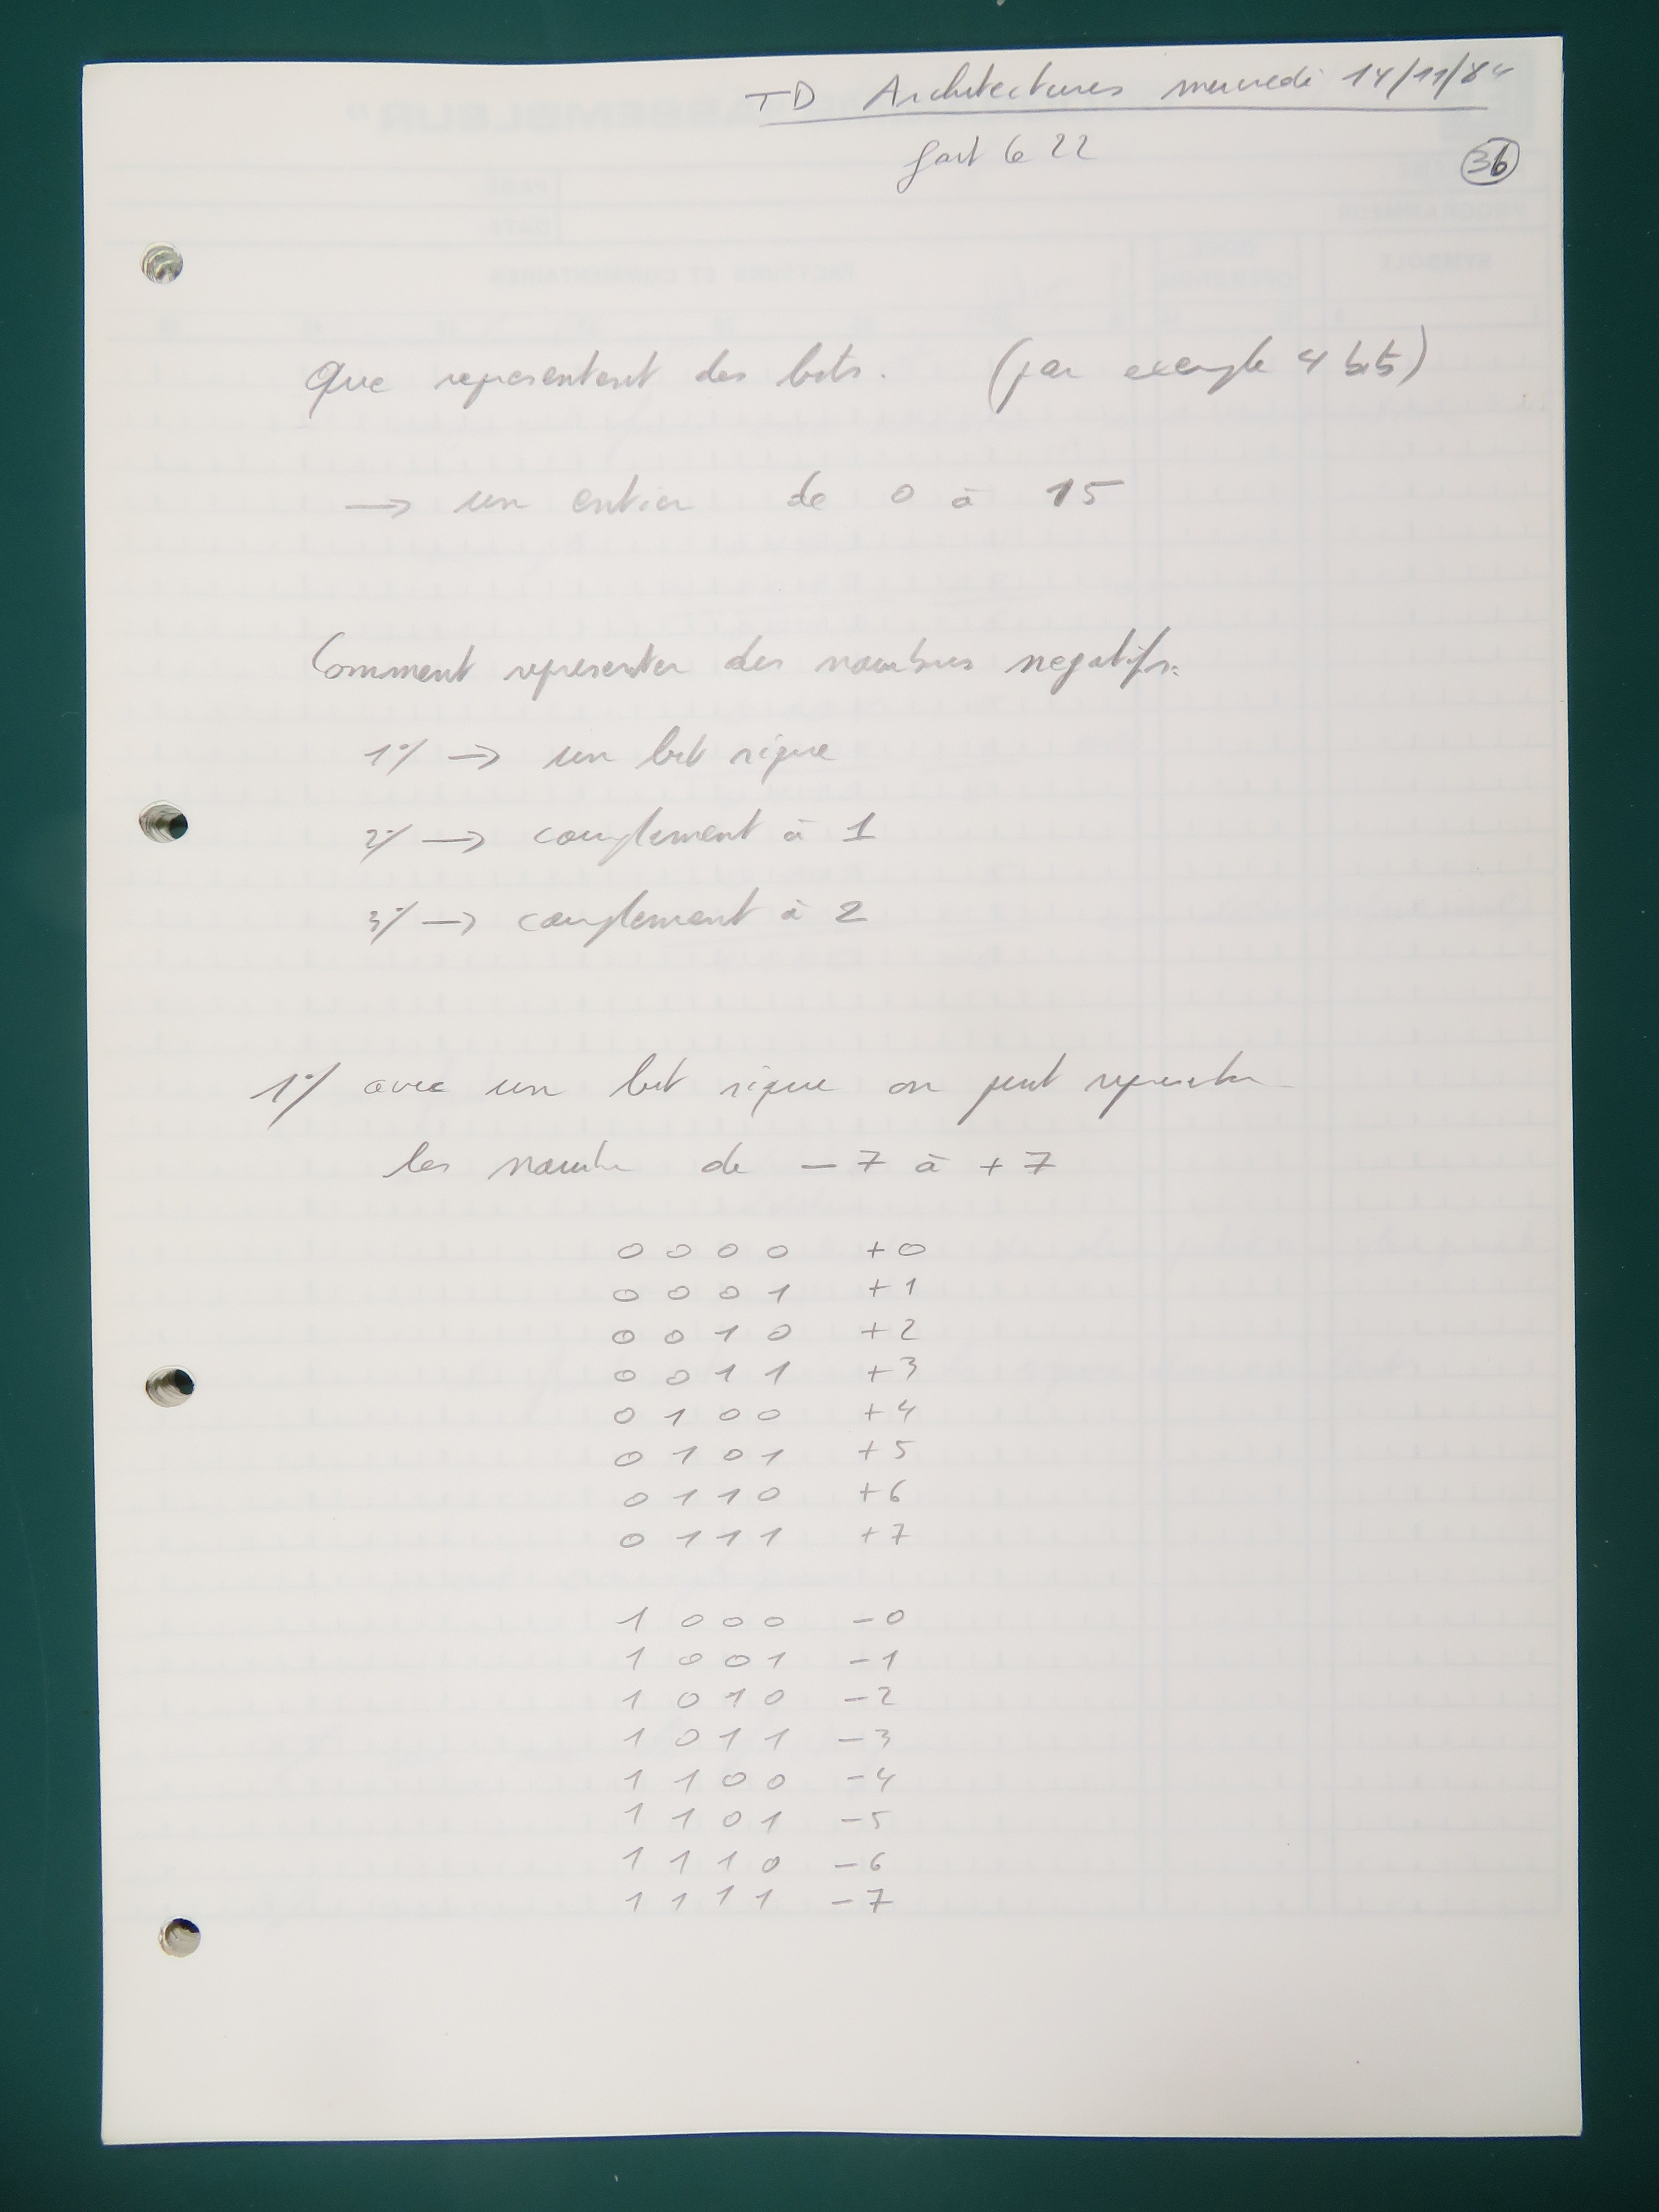 TD Architectures mercredi 14/11/84
fait le 22
36
Que representent des bits. (par exemple 4 bits)
→ un entier de 0 à 15
Comment representer des nombres negatifs:
1°/ → un bit signe
2°/ → complement à 1
3°/ → complement à 2
1°/ avec un bit signe on peut representer
les nombre de -7 à +7
0 0 0 0 +0
0 0 0 1 +1
0 0 1 0 +2
0 0 1 1 +3
0 1 0 0 +4
0 1 0 1 +5
0 1 1 0 +6
0 1 1 1 +7
1 0 0 0 -0
1 0 0 1 -1
1 0 1 0 -2
1 0 1 1 -3
1 1 0 0 -4
1 1 0 1 -5
1 1 1 0 -6
1 1 1 1 -7